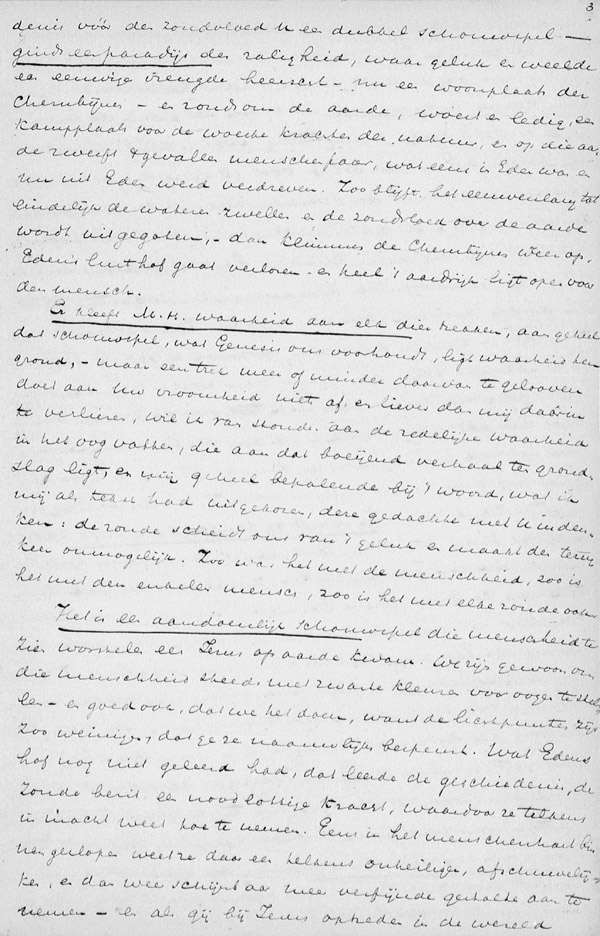 3
denis vóór den zondvloed U een dubbel schouwspel —
ginds een paradijs der zaligheid, waar geluk en weelde
en eeuwige vreugde heerscht – nu een woonplaats der
Cherubijnen – en rondom de aarde, woest en ledig, een
kampplaats voor de woeste krachten der natuur, en op die aar-
de zwerft 't gevallen menschenpaar, wat eens in Eden was en
nu uit Eden werd verdreven. Zoo blijft het eeuwenlang tot
eindelijk de wateren zwellen en de zondvloed over de aarde
wordt uitgegoten, – dan klimmen de Cherubijnen weer op,
Edens lusthof gaat verloren en heel 't aardrijk ligt open voor
den mensch.
Er kleeft M. H. waarheid aan elk dier trekken, aan geheel
dat schouwspel, wat Genesis ons voorhoudt, ligt waarheid ten
grond, – maar een trek meer of minder daarvan te gelooven
doet aan Uw vroomheid niets af, en liever dan mij daarin
te verliezen, wil ik van stonde aan de redelijke waarheid
in het oog vatten, die aan dat boeijend verhaal ten grond-
slag ligt, en mij geheel bepalende bij 't woord, wat ik
mij als tekst had uitgekozen, deze gedachte met U inden-
ken: de zonde scheidt ons van 't geluk en maakt den terug
keer onmogelijk. Zoo was het met de menschheid, zoo is
het met den enkelen mensch, zoo is het met elke zonde ook.
Het is een aandoenlijk schouwspel die menscheid te
zien worstelen eer Jezus op aarde kwam. We zijn gewoon om
die menschheid steeds met zwarte kleuren voor oogen te stel-
len – en goed ook, dat we het doen, want de lichtpunten zijn
zoo weinige, dat ge ze naauwlijks bespeurt. Wat Edens
hof nog niet geleerd had, dat leerde de geschiedenis, de
zonde bezit een noodlottige kracht, waardoor ze telkens
in macht weet toe te nemen. Eens in het menschenhart bin-
nengeslopen weet ze daar een telkens onheiliger, afschuwelij-
ker, en dan weer schijnbaar meer verfijnde gestalte aan te
nemen – en als gij bij Jezus optreden in de wereld